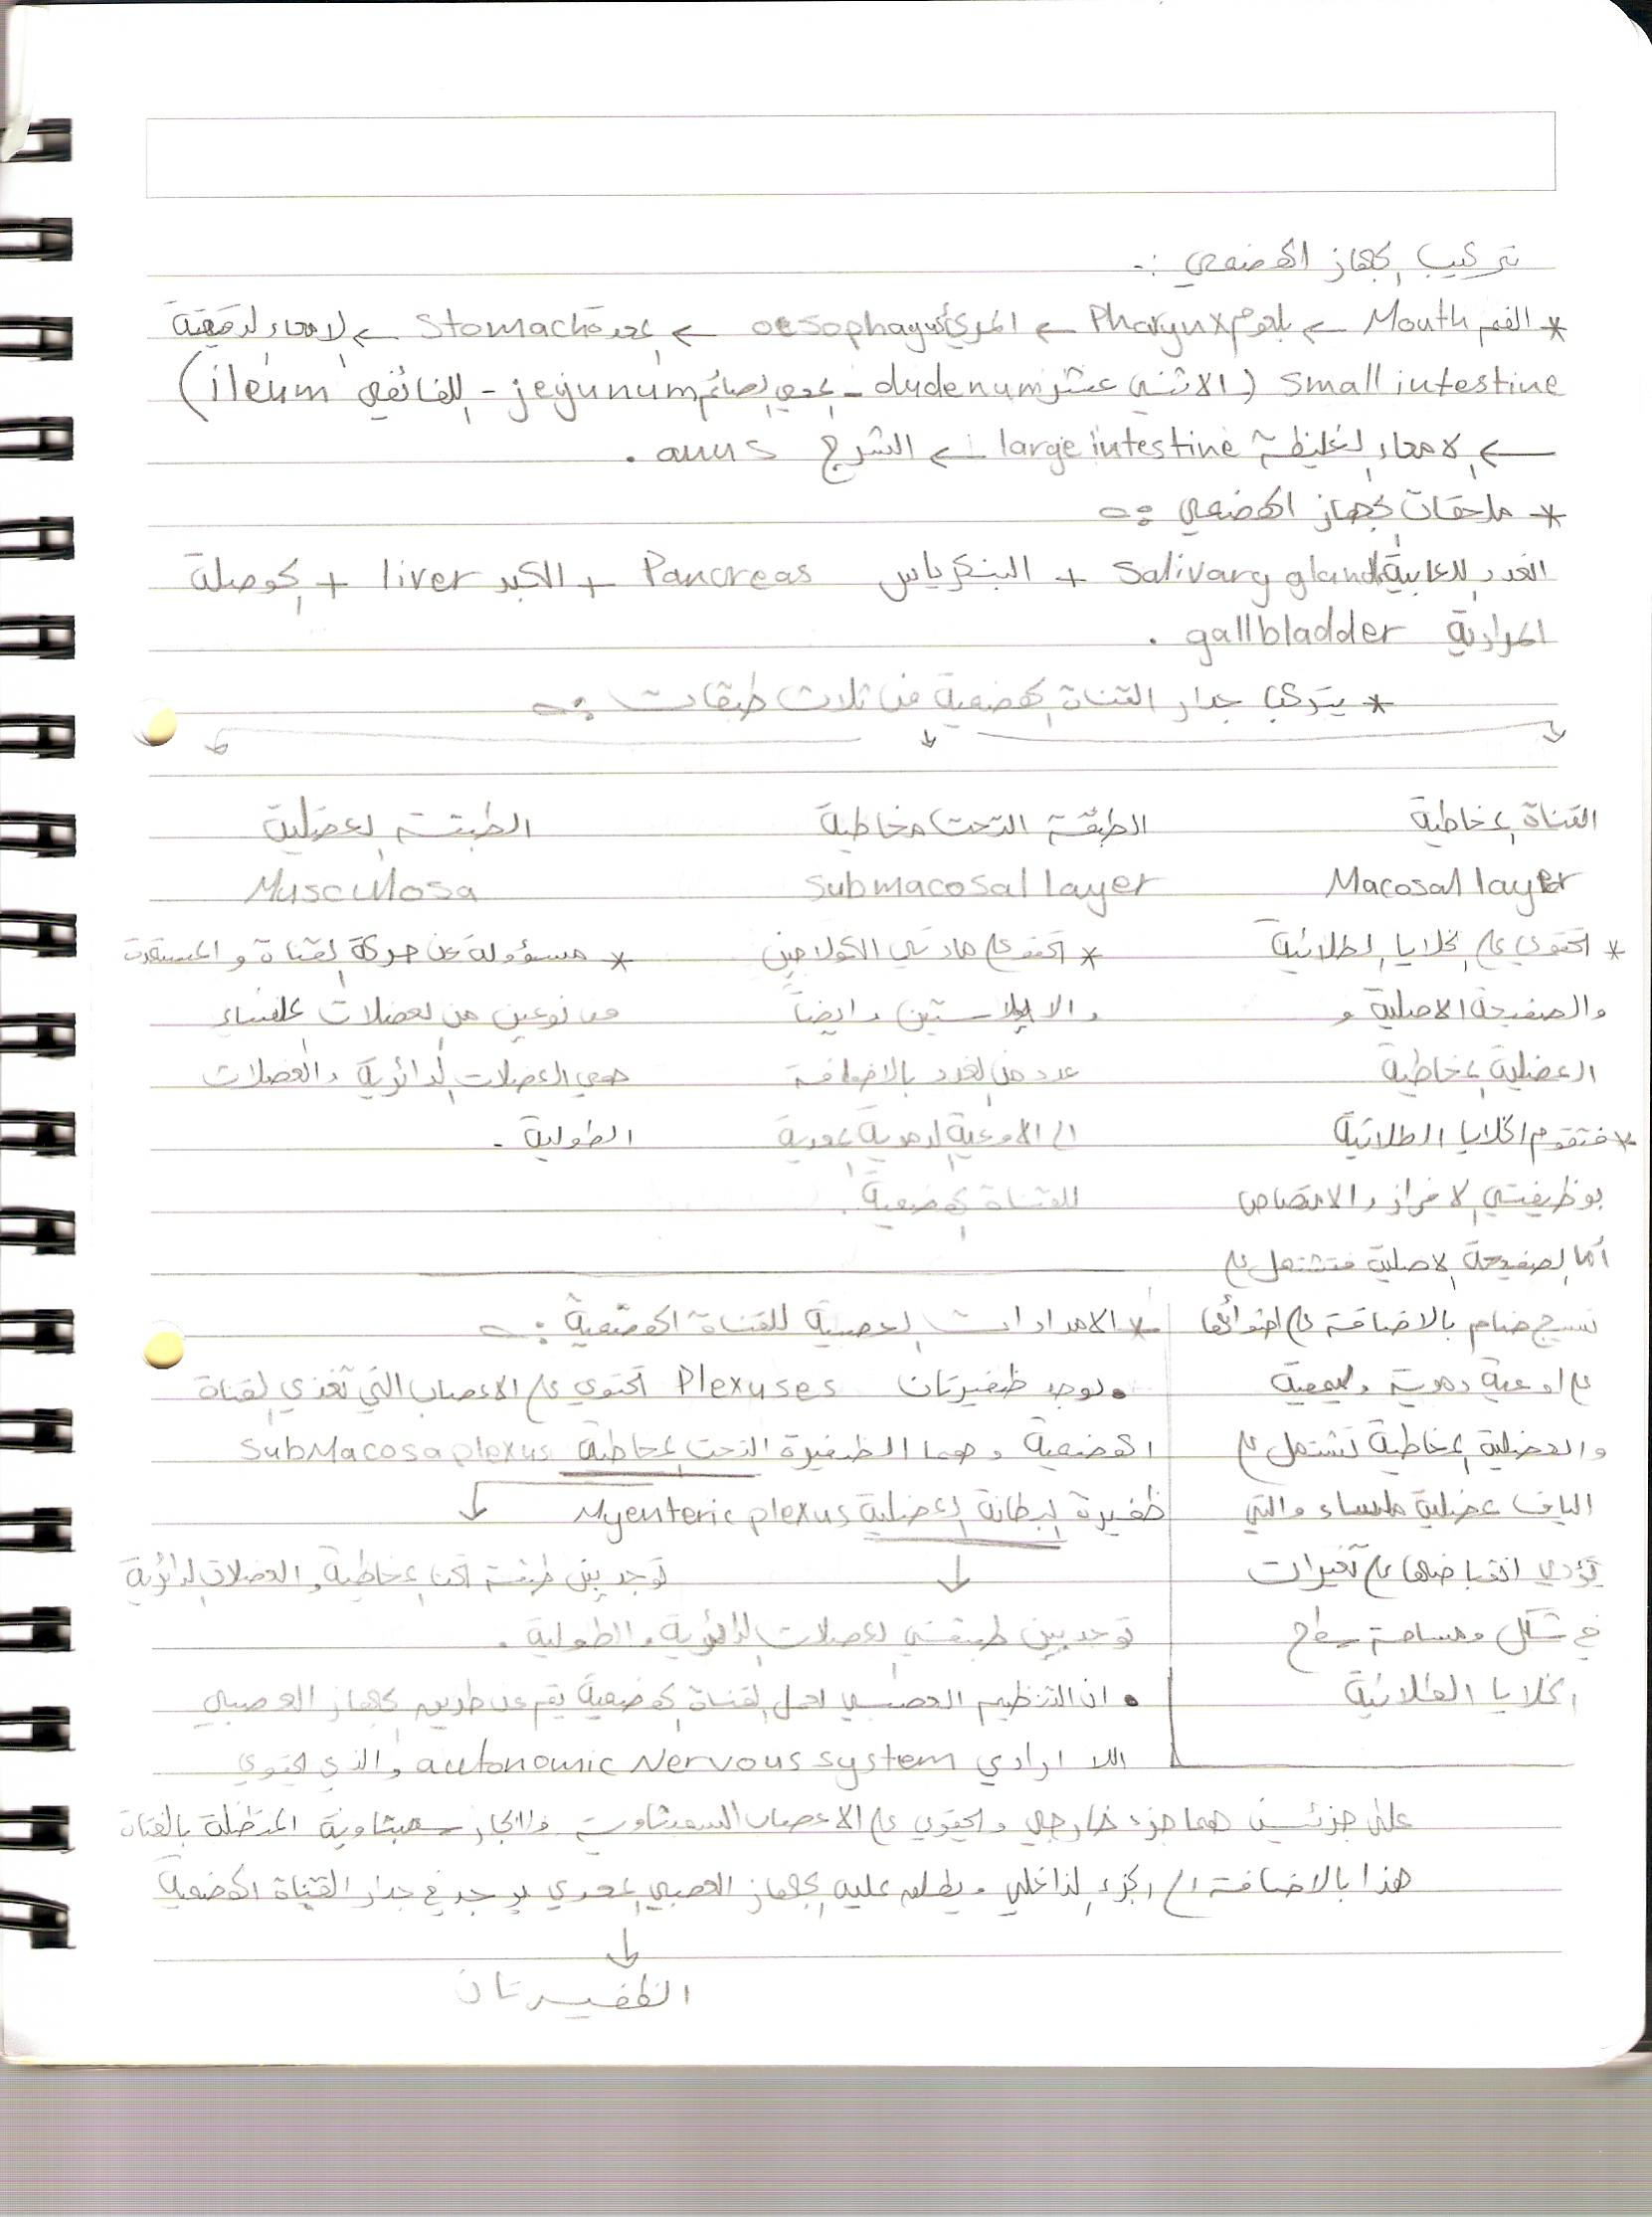 تركيب الجهاز الهضمي :-
* الفم Mouth ← بلعوم Pharynx ← المرئ oesophagus ← المعدة Stomach ← الامعاء الدقيقة
Small intestine (الاثني عشر dudenum - المعي الصائم jejunum - اللفائفي ileum)
← الامعاء الغليظة large intestine ← الشرج anus .
* ملحقات الجهاز الهضمي :-
الغدد اللعابية Salivary gland + البنكرياس Pancreas + الكبد liver + الحوصلة
المرارية gallbladder .
* يتركب جدار القناة الهضمية من ثلاث طبقات :-
القناة المخاطية
Macosal layer
* تحتوي على الخلايا الطلائية
والصفيحة الاصلية و
العضلية المخاطية
* فتقوم الخلايا الطلائية
بوظيفتي الافراز والامتصاص
أما الصفيحة الاصلية فتشتمل على
نسيج ضام بالاضافة على احتوائها
على اوعية دموية وليمفية
والعضلية المخاطية تشتمل على
الياف عضلية ملساء والتي
يؤدي انقباضها على تغيرات
في شكل ومساحة سطح
الخلايا الطلائية
الطبقة التحت مخاطية
Submacosal layer
* تحتوي على مادتي الكولاجين
والايلاستين وايضاً
عدد من الغدد بالاضافة
الى الاوعية الدموية المعوية
للقناة الهضمية .
الطبقة العضلية
Musculosa
* مسؤولة عن حركة القناة و
من نوعين من العضلات الملساء
هي العضلات الدائرية والعضلات
الطولية .
* الامدادات العصبية للقناة الهضمية :-
• يوجد ظفيرتان Plexuses تحتوي على الاعصاب التي تغذي القناة
الهضمية وهما الظفيرة التحت المخاطية SubMacosa plexus
ظفيرة البطانة العضلية Myenteric plexus
توجد بين طبقة تحت المخاطية والعضلات الدائرية
توجد بين طبقتي العضلات الدائرية والطولية .
• ان التنظيم العصبي لعمل القناة الهضمية يتم عن طريق الجهاز العصبي
اللا ارادي autonomic Nervous system والذي يحتوي
على جزئين هما جزء خارجي ويحتوي على الاعصاب السمبثاوية سمبثاوية المتصلة بالقناة
هذا بالاضافة الى الجزء الداخلي ويطلق عليه الجهاز العصبي المعوي يوجد في جدار القناة الهضمية
الظفيرتان